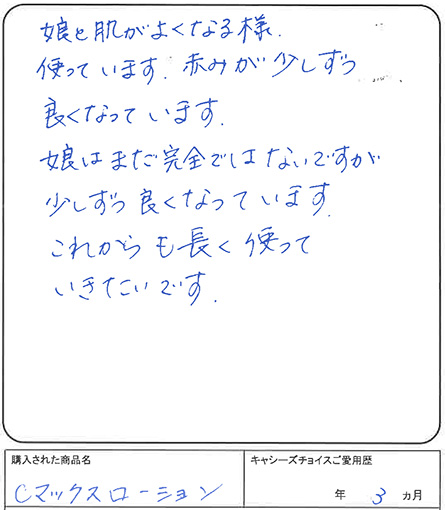 娘と肌がよくなる様.
使っています. 赤みが少しずつ
良くなっています.
娘はまだ完全ではないですが
少しずつ良くなっています.
これからも長く使って
いきたいです.
購入された商品名
キャシーズチョイスご愛用歴
Cマックスローション
年 3 ヵ月